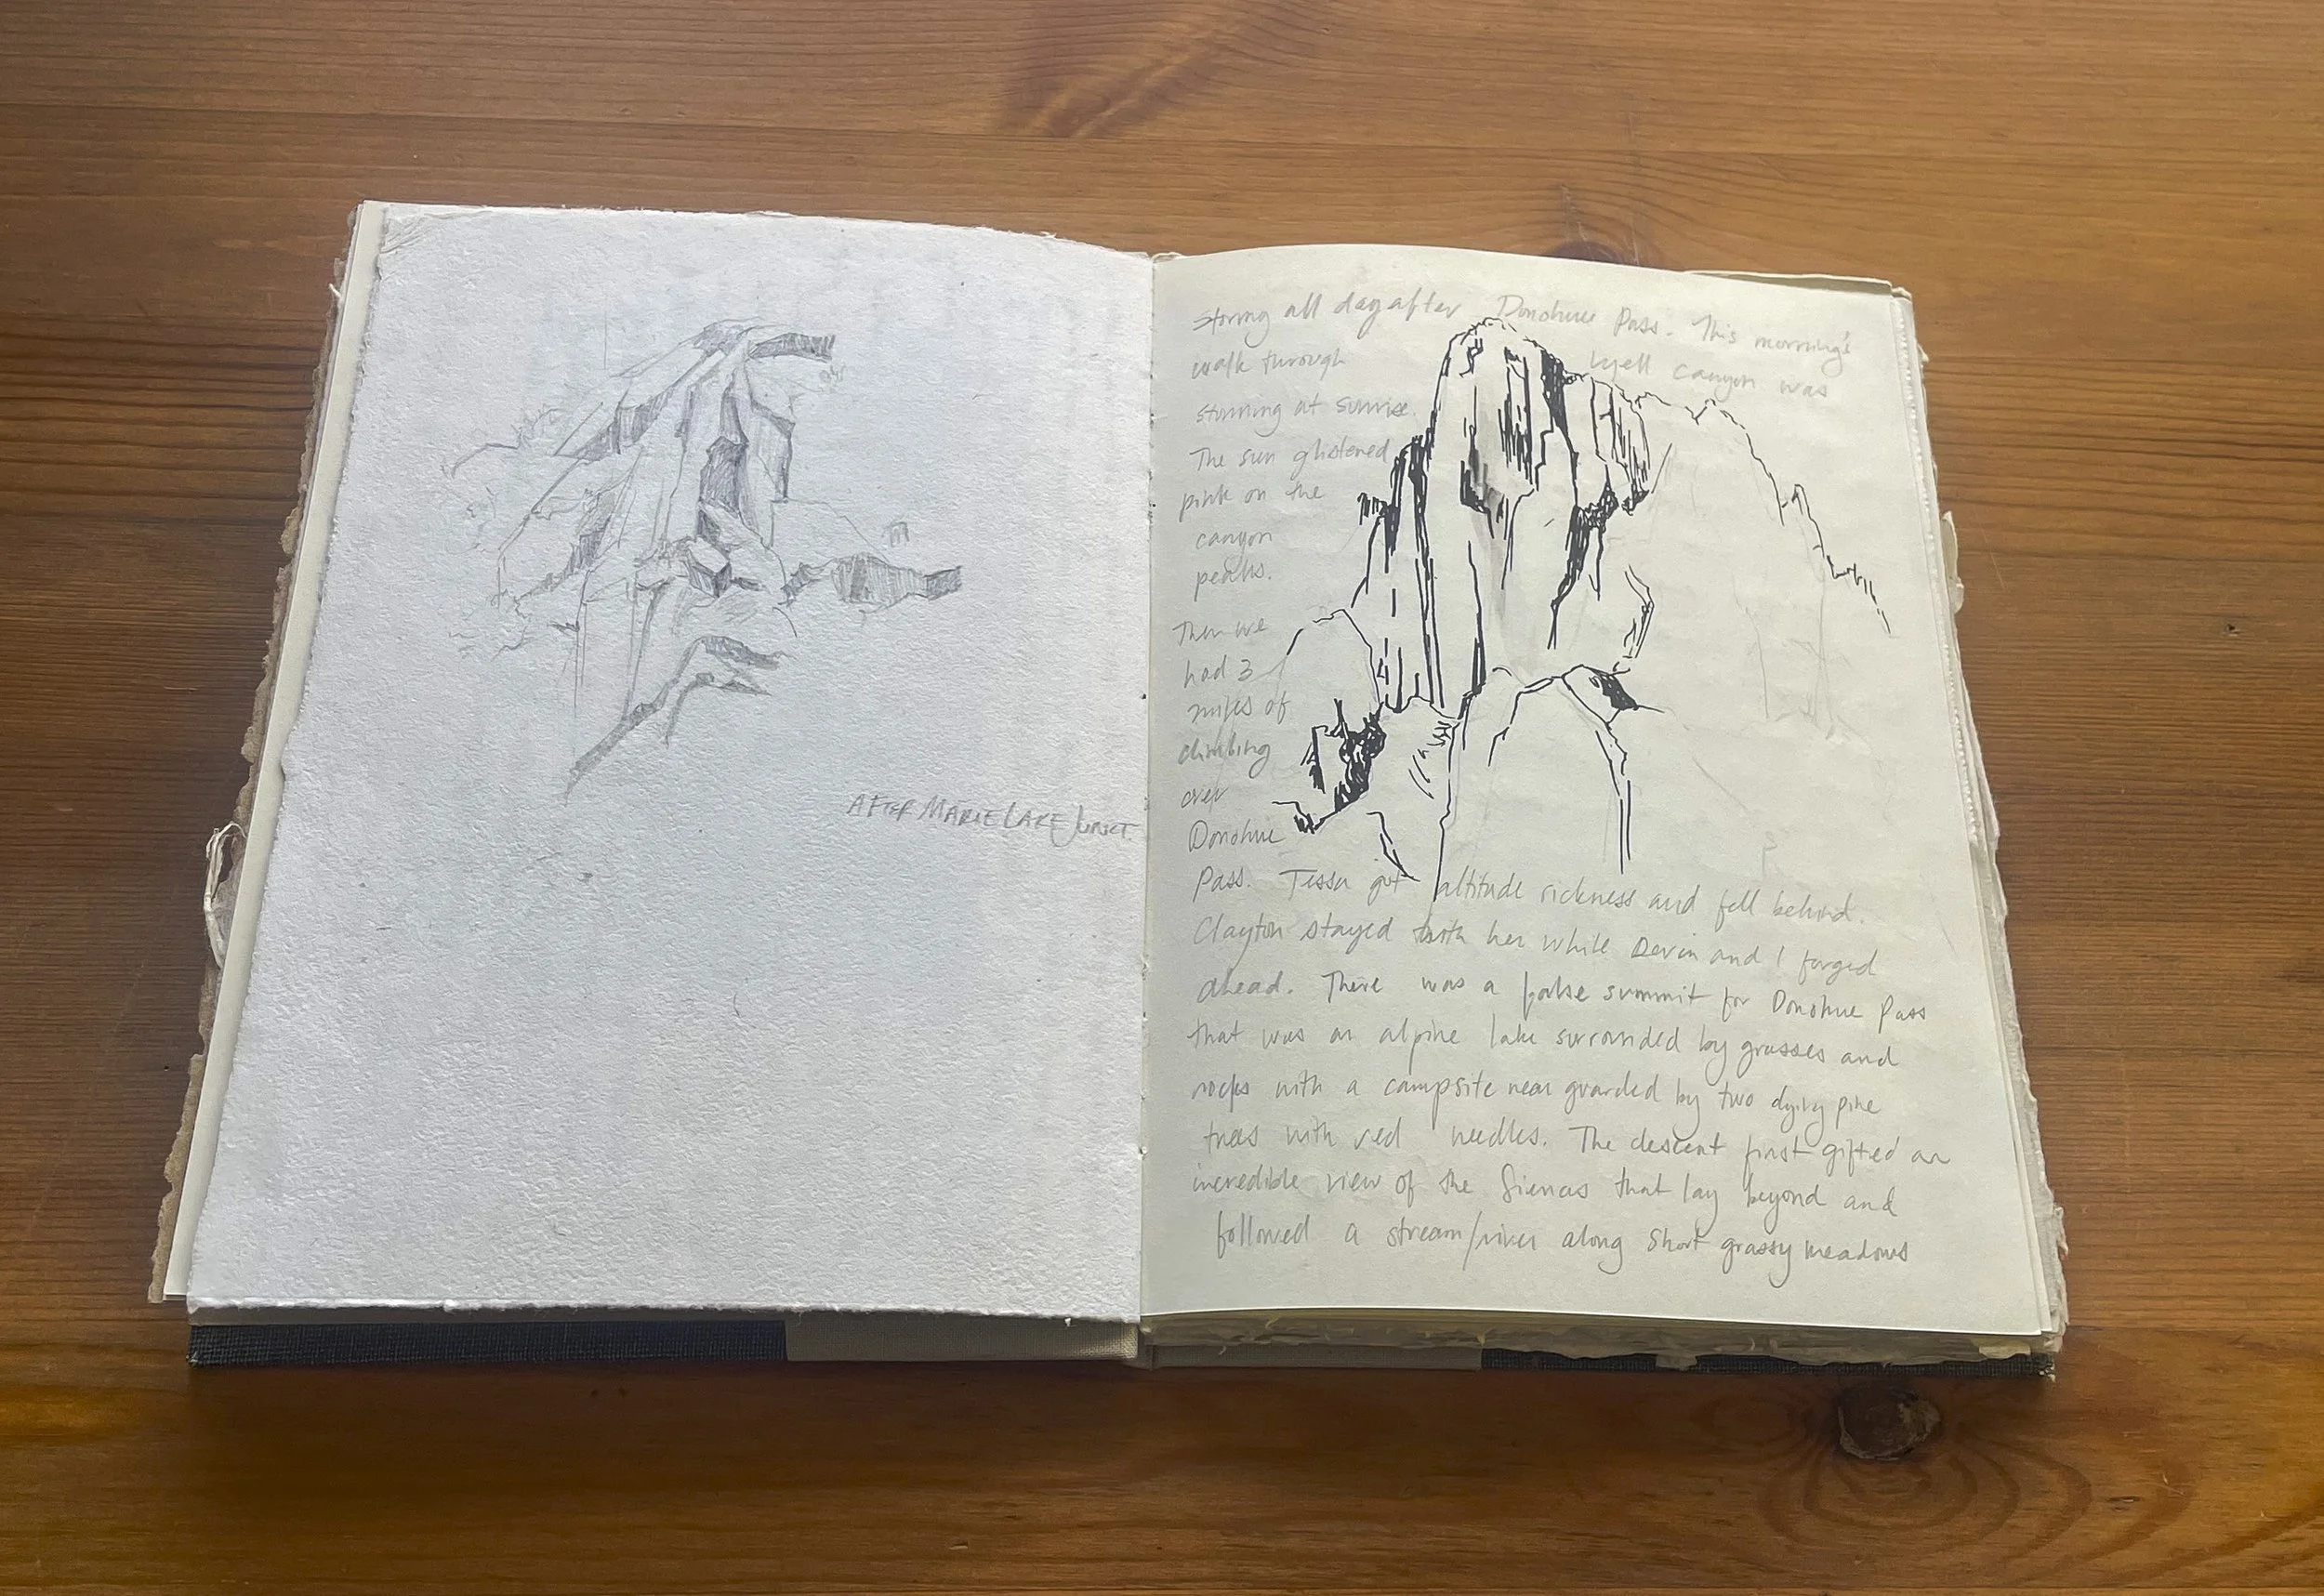 AFTER MARIE LAKE JUNCT.
all day after Donohue Pass. This morning's
walk through Lyell Canyon was
stunning at sunrise.
The sun glistened
pink on the
canyon
peaks.
Then we
had 3
miles of
climbing
over
Donohue
Pass. Tessa got altitude sickness and fell behind.
Clayton stayed with her while Devin and I forged
ahead. There was a false summit for Donohue Pass
that was an alpine lake surrounded by grasses and
rocks with a campsite near guarded by two dying pine
trees with red needles. The descent first gifted an
incredible view of the Sierras that lay beyond and
followed a stream/river along short grassy meadows